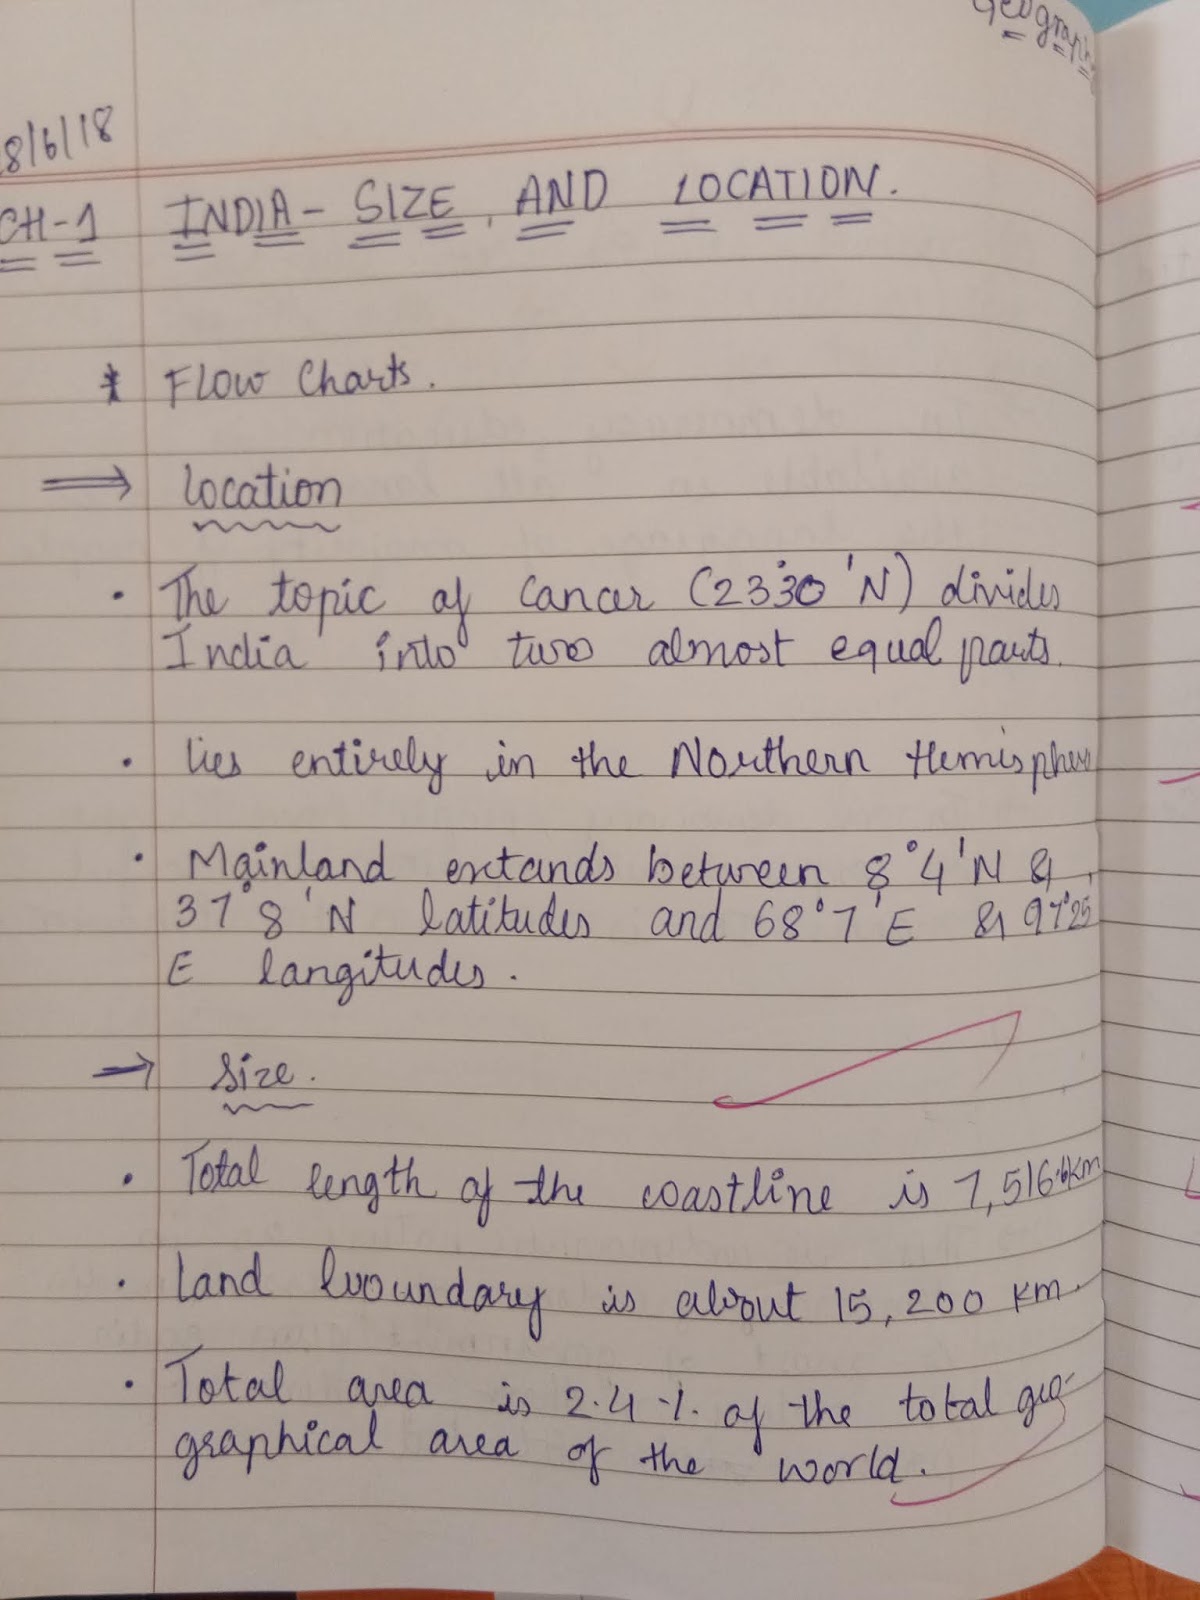 Geography
8/6/18
CH-1 INDIA - SIZE AND LOCATION.
* Flow Charts.
⇒ location
• The topic of cancer (23°30'N) divides
India into two almost equal parts.
• lies entirely in the Northern Hemisphere
• Mainland extands between 8°4'N &
37°8'N latitudes and 68°7'E & 97°25'
E langitudes.
→ Size.
• Total length of the coastline is 7,516.6km
• land boundary is about 15,200 km.
• Total area is 2.4 % of the total geo-
graphical area of the world.